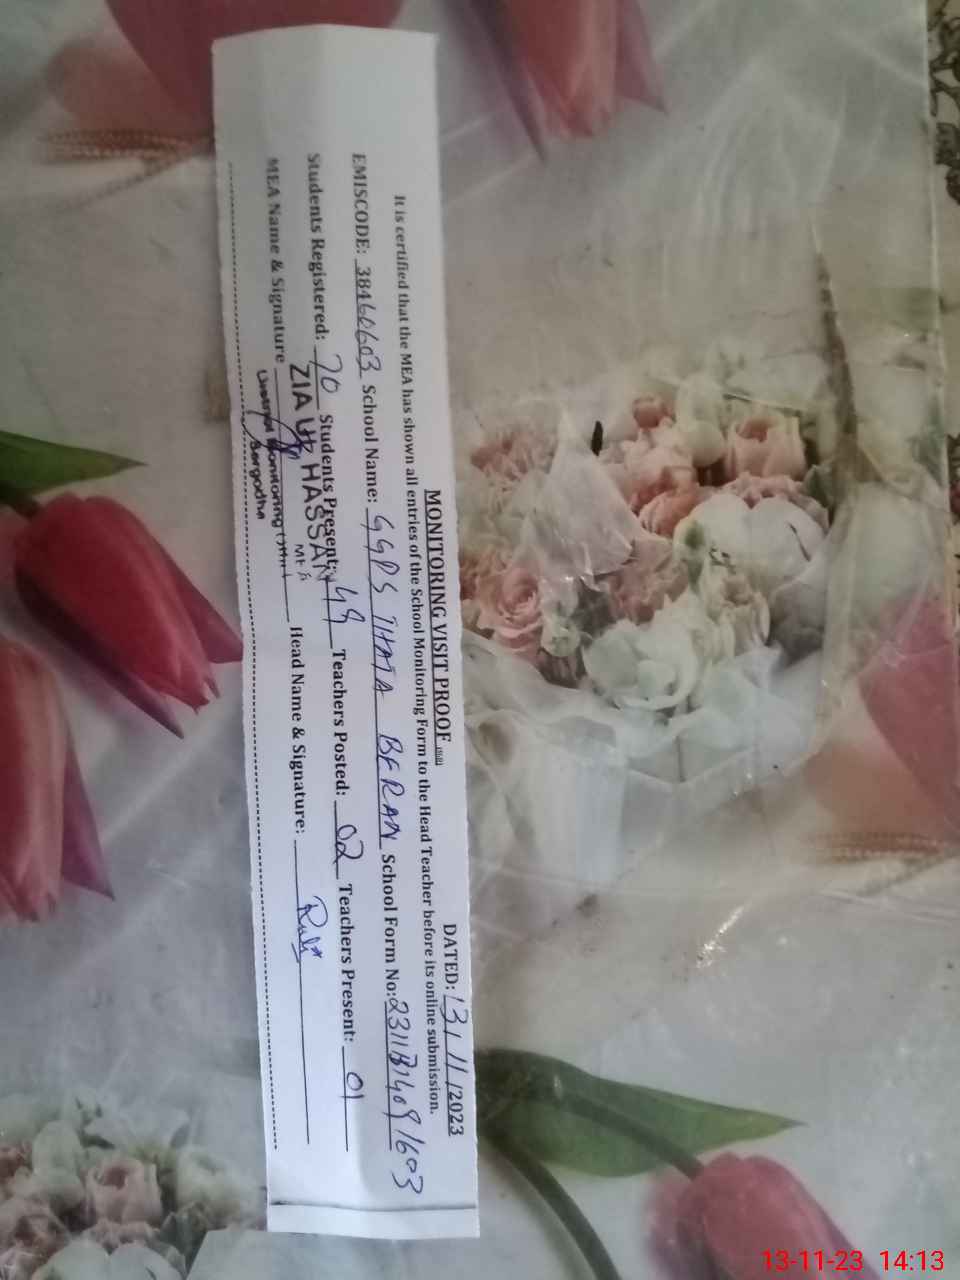 MONITORING VISIT PROOF
DATED: 13/11/2023
It is certified that the MEA has shown all entries of the School Monitoring Form to the Head Teacher before its online submission.
EMISCODE: 38460603 School Name: GGPS THATTA BERAN School Form No:
Students Registered: 70 Students Present: 49 Teachers Posted: 02 Teachers Present: 01
MEA Name & Signature Head Name & Signature:
ZIA UL HASSAN
MEA
Monitoring
Sargodha
13-11-23 14:13